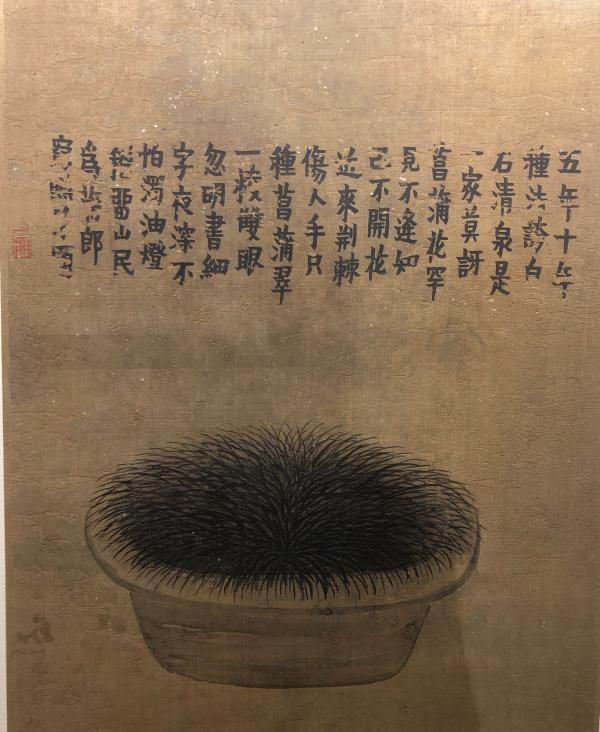 五年十年
種法誇白
石清泉是
一家莫訝
菖蒲花罕
見不逢知
己不開花
近來荊棘
傷人手只
種菖蒲翠
一稜雙眼
忽明書細
字夜深不
怕濁油燈
留山民
郎